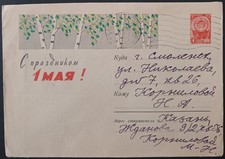 С праздником
1 МАЯ!
Куда г. Смоленск,
ул. Николаева,
дом 7, кв 26
Кому Корниловой
Н. А.
Адрес отправителя Казань,
Жданова
Корниловой
М.